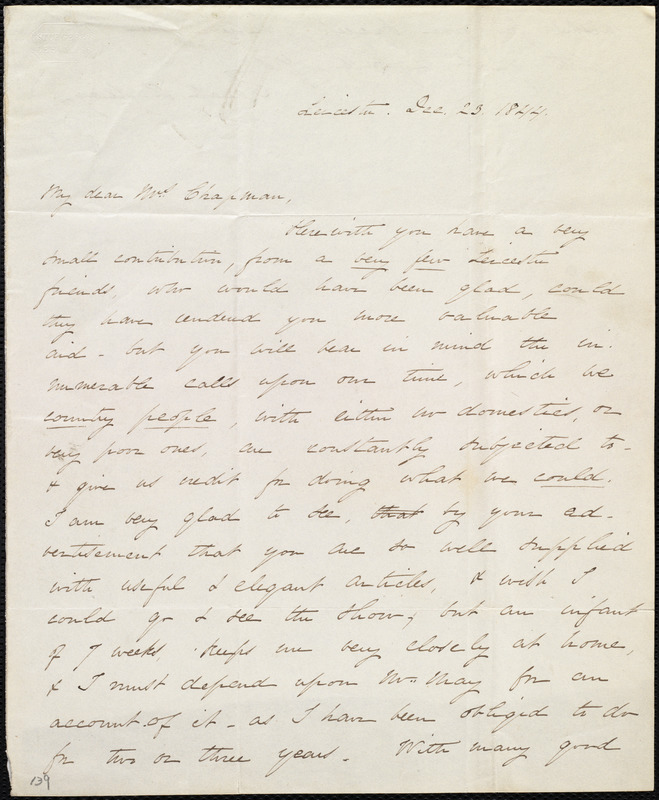 Leicester. Dec. 23. 1844.
My dear Mrs. Chapman,
Herewith you have a very
small contribution, from a very few Leicester
friends, who would have been glad, could
they have rendered you more valuable
aid - but you will bear in mind the in-
numerable calls upon our time, which we
country people, with either no domestics, or
very poor ones, are constantly subjected to -
& give us credit for doing what we could.
I am very glad to see, that by your ad-
vertisement that you are so well supplied
with useful & elegant articles, & wish I
could go & see the show; but an infant
of 7 weeks, keeps me very closely at home,
& I must depend upon Mr. May for an
account of it - as I have been obliged to do
for two or three years. With many good
139